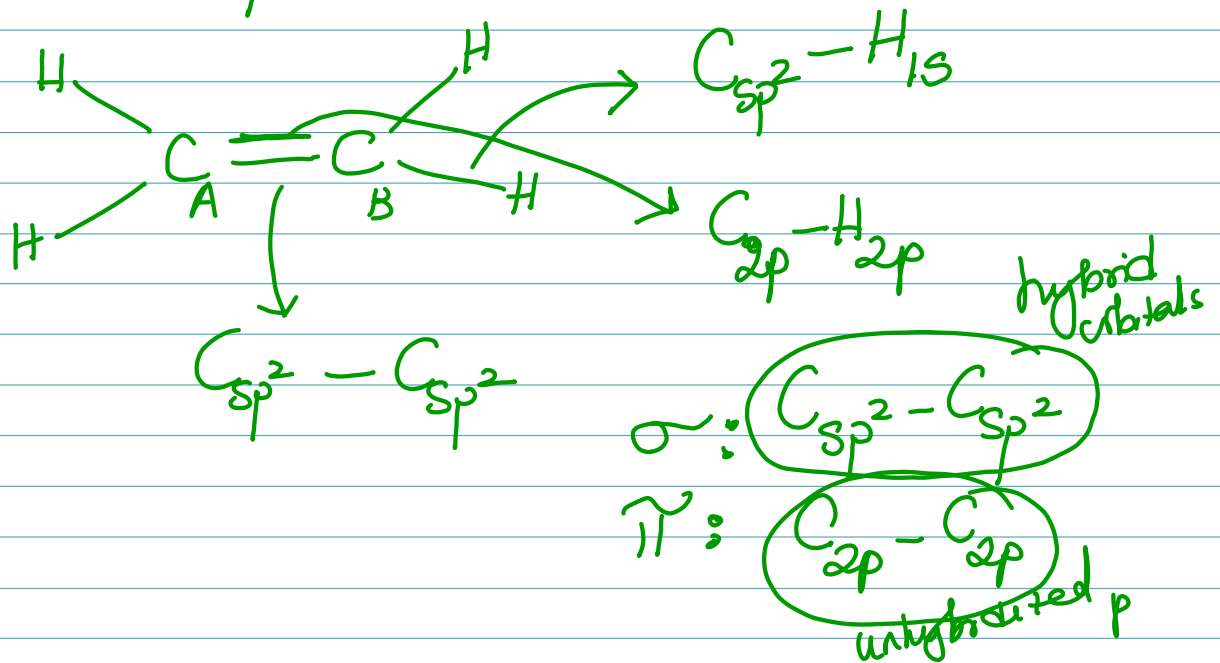 H H
C = C
A B
H H
C sp² — H 1s
C 2p — H 2p
C sp² — C sp²
hybrid
orbitals
σ: C sp² — C sp²
π: C 2p — C 2p
unhybridized p